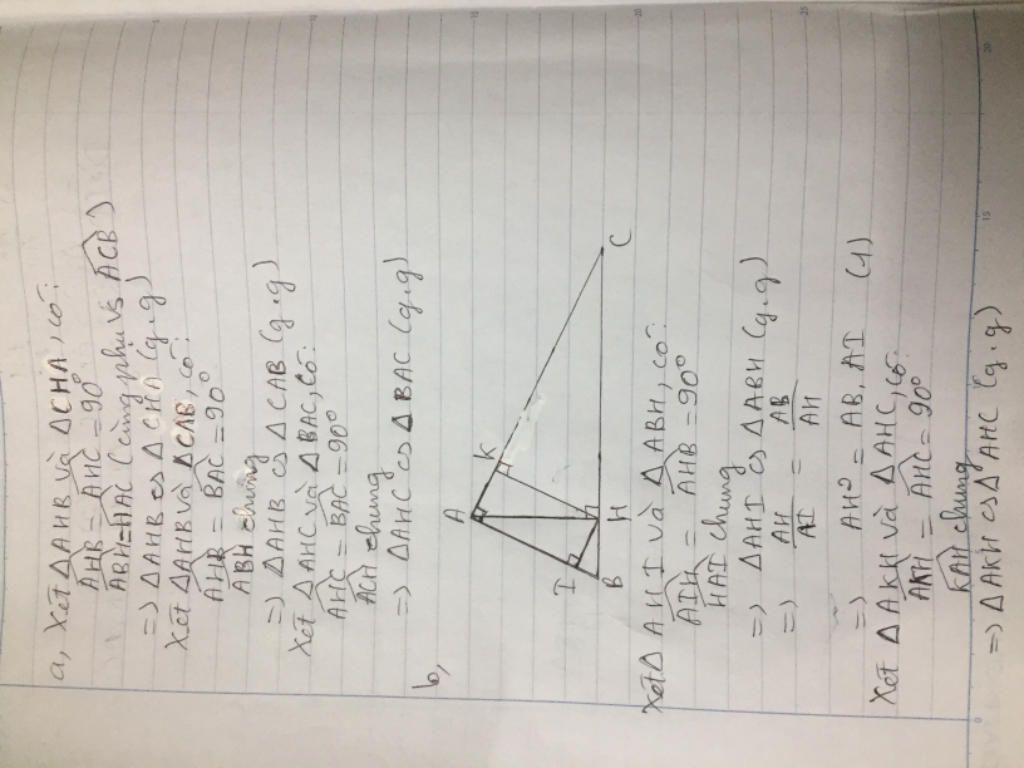 a, Xét ΔAHB và ΔCHA, có:
AHB = AHC = 90°
ABH = HAC (cùng phụ vs ACB)
=) ΔAHB ᔕ ΔCHA (g.g)
Xét ΔAHB và ΔCAB, có:
AHB = BAC = 90°
ABH chung
=) ΔAHB ᔕ ΔCAB (g.g)
Xét ΔAHC và ΔBAC, có:
AHC = BAC = 90°
ACH chung
=) ΔAHC ᔕ ΔBAC (g.g)
b,
A
K
I
B
H
C
Xét Δ AHI và ΔABH, có:
AIH = AHB = 90°
HAI chung
=) ΔAHI ᔕ ΔABH (g.g)
=) AH/AI = AB/AH
=) AH² = AB.AI (1)
Xét ΔAKH và ΔAHC, có:
AKH = AHC = 90°
KAH chung
=) ΔAKH ᔕ ΔAHC (g.g)